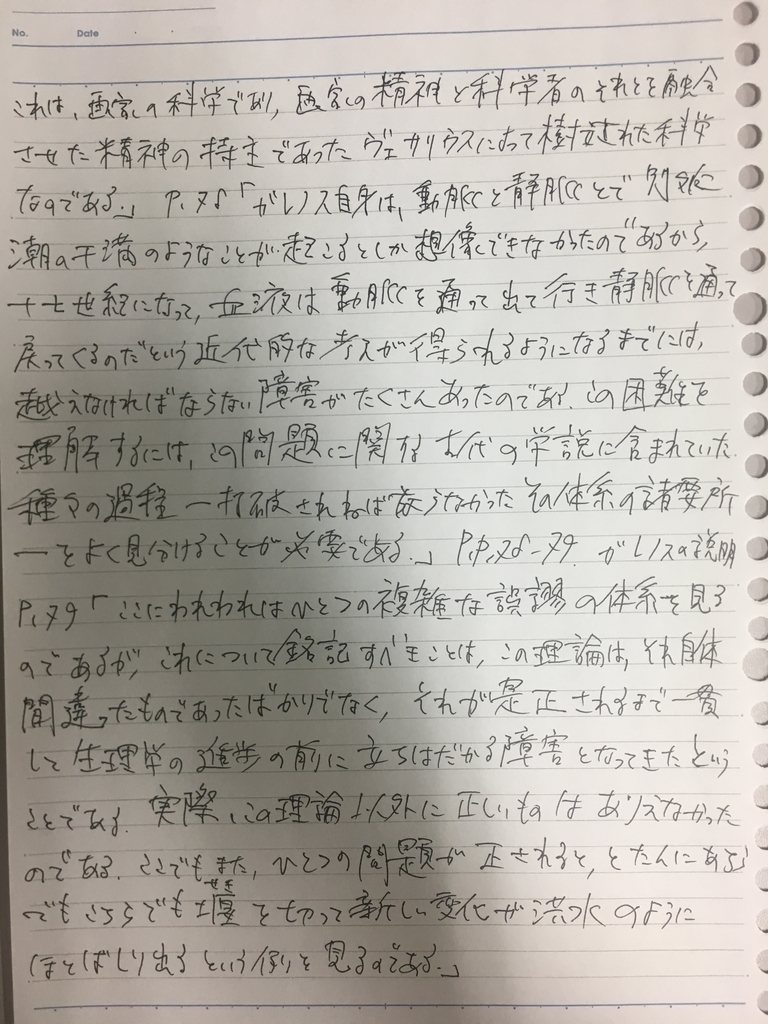 No.  Date
これは、画家の科学であり、画家の精神と科学者のそれとを融合
させた精神の持主であったヴェサリウスによって樹立された科学
なのである。」 P.78「ガレノス自身は、動脈と静脈とで別々に
潮の干満のようなことが起こるとしか想像できなかったのであるから、
十七世紀になって、血液は動脈を通って出て行き静脈を通って
戻ってくるのだという近代的な考えが得られるようになるまでには、
越えなければならない障害がたくさんあったのである。この困難を
理解するには、この問題に関する古代の学説に含まれていた
種々の過程一打破されねばならなかったその体系の諸要所
一をよく見分けることが必要である。」 P,P,78-79. ガレノスの説明
P,79「ここにわれわれはひとつの複雑な誤謬の体系を見る
のであるが、これについて銘記すべきことは、この理論は、それ自体
間違ったものであったばかりでなく、それが是正されるまで一貫
して生理学の進歩の前に立ちはだかる障害となってきたという
ことである。実際、この理論以外に正しいものはありえなかった
のである。ここでもまた、ひとつの問題が正されると、とたんにあちら
でもこちらでも堰せきを切って新しい変化が洪水のように
ほとばしり出るという例を見るのである。」